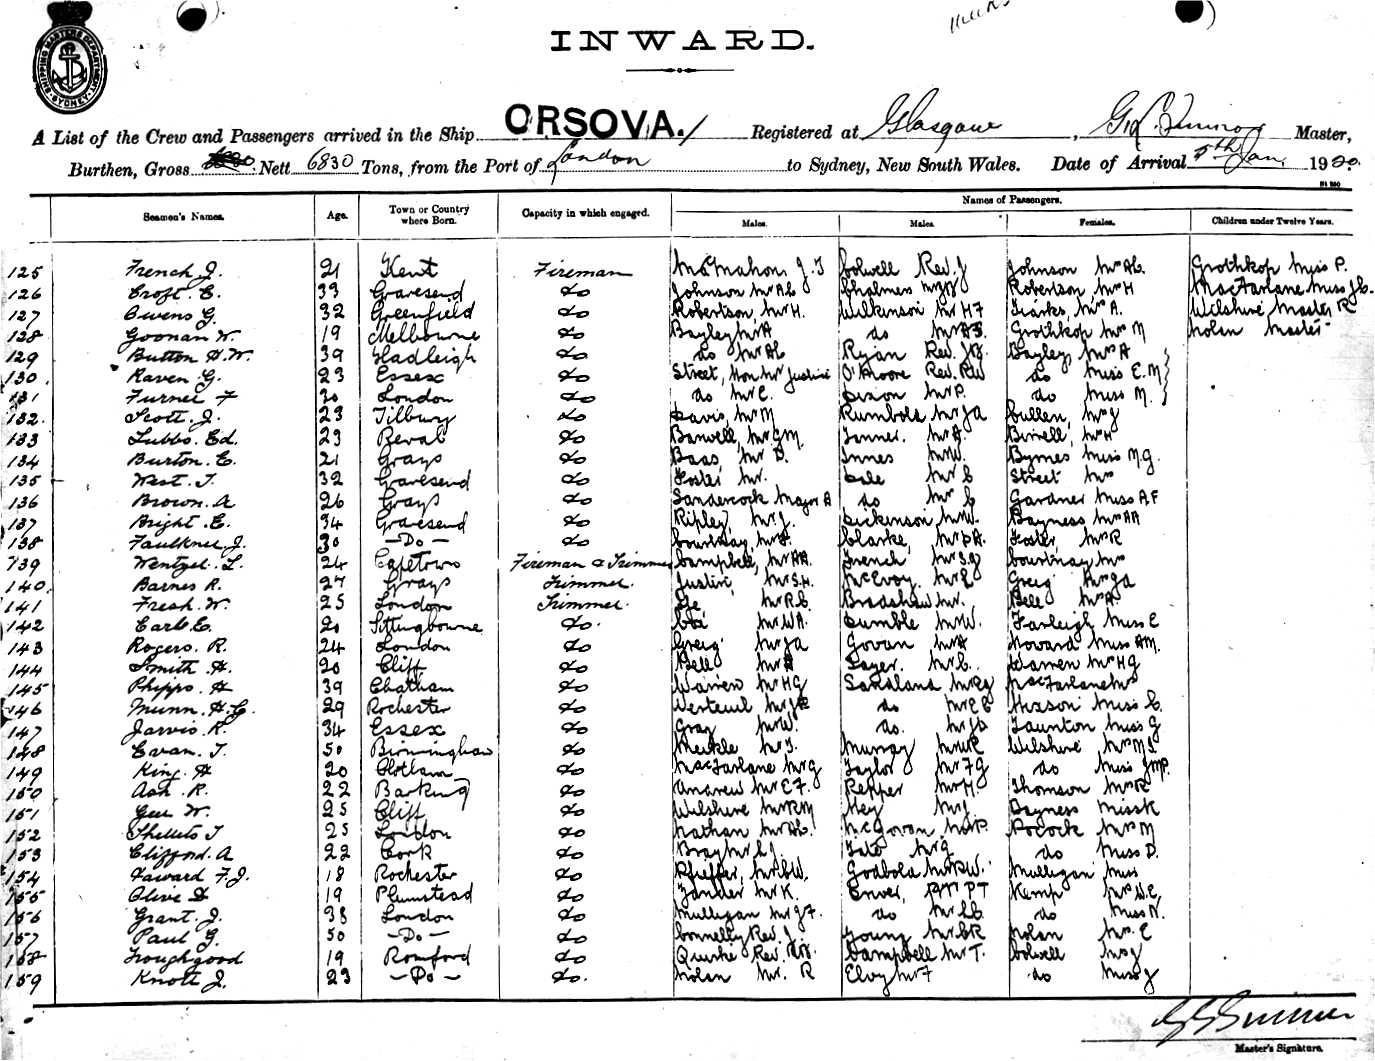 SHIPPING MASTER'S DEPARTMENT SYDNEY
INWARD.
A List of the Crew and Passengers arrived in the Ship ORSOVA. Registered at Glasgow, Master,
Burthen, Gross Nett 6830 Tons, from the Port of London to Sydney, New South Wales. Date of Arrival 5th Jan 1920.
Names of Passengers.
Seamen's Names. Age. Town or Country where Born. Capacity in which engaged. Males. Males. Females. Children under Twelve Years.
125 French J. 21 Kent Fireman McMahon J. T Colwell Rev. J Johnson Mrs Ab. Grothkop Miss P.
126 Croft. E. 33 Gravesend do Johnson Mr Ab Chalmers Mr Robertson Mrs H MacFarlane Miss
127 Owens G. 32 Greenfield do Robertson, Mr H. Wilkinson Mr H F Mrs A. Wilshire Master R
128 Goonan W. 19 Melbourne do Bayley Mr A do Mr Grothkop Mrs M Nolan Master
129 Button H. W. 39 Hadleigh do do Mr Ab Ryan Rev. Bayley, Mrs A
130 Raven G. 23 Essex do Street, Hon Mr Justice O'Moore Rev. do Miss E. M
131 Furner F 30 London do do Mr E. Dixon Mr P. do Miss M.
132. Scott. J. 23 Tilbury do Davis, Mr M Rumbold Mr JA Cullen, Mrs J
133 Lubbs. Ed. 23 Reval do Barwell, Mr G M. Mr A. Birrell, Mrs H
134 Burton. E. 21 Grays do Baas, Mr D. Innes Mr W. Byrnes Miss M. G.
135 West. T. 32 Gravesend do Foster Mr. Dale Mr C Street Mrs
136 Brown. A 26 Grays do Sandercock Major A do Mr C Gardner Miss A F
137 Bright. E. 34 Gravesend do Ripley, Mr J. Dickinson Mr W. Bayness Mrs AA
138 Faulkner J. 30 —Do— do Courtnay, Mr Clarke, Mr Foster, Mrs R
139 Wentzel. L. 24 Capetown Fireman & Trimmer Campbell, Mr AA. French Mr S. G Courtnay Mrs
140. Barnes R. 27 Grays Trimmer. Justice, Mr S. H. McElroy. Mr E Greig Mrs JA
141 Fresh. W. 25 London Trimmer. Mr R. C. Bradshaw Mr. Bell Mrs A.
142 Earl E. 20 Sittingbourne do. Mr WA. Dumble Mr W. Farleigh Miss E
143 Rogers. R. 24 London do Greig Mr JA Govan Mr A Howard Miss AM.
144 Smith. H. 20 Cliff do Bell Mr A Sayer. Mr C. Warren Mrs H G
145 Phipps. H 39 Chatham do Warren Mr H G Sandland Mr MacFarlane Mrs
146 Munn. H. C. 29 Rochester do Verteuil Mr do Mr E C Hixson Miss C.
147 Jarvis. R. 34 Essex do Gray Mr W. do. Mr Taunton Miss G
148 Evan. T. 50 Birmingham do Meikle Mr J. Murray Mr Wilshire Mrs
149 King. H 20 Chatham do MacFarlane Mr G Taylor Mr F G do Miss
150 Ash. R. 22 Barking do Andrew Mr E. F. Pepper Mr H. Thomson Mrs R
151 Gee W. 25 Cliff do Wilshire Mr RM Hey Mr J. Bayness Miss K
152 T 25 London do Nathan Mr McGovan, Mr P. Pocock Mrs M
153 Clifford. A 22 Cork do Bray Mr Tate Mr G do Miss D.
154 F. J. 18 Rochester do Pfeiffer, Mr Godbold Mr Mulligan Miss
155 Clive 19 Plumstead do Zander Mr K. Kemp Mrs
156 Grant. J. 38 London do Mulligan Mr J F. do Mr do Miss N.
157 Paul G. 50 —Do— do Connelly Rev. J Young Mr Nolan Mrs E
158 Troughgood 19 Romford do Quirke Rev. Campbell Mr T. Colwell Mrs J
159 Knott J. 23 —Do— do. Nolan Mr. R Elvy Mr F do Miss J
Master's Signature.